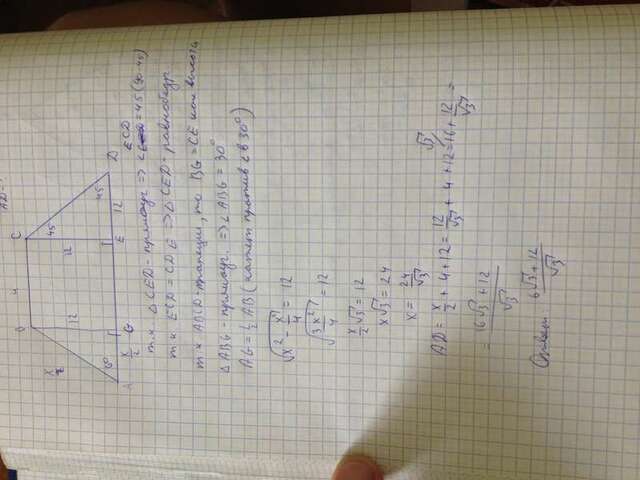 AD-?
4
B C
x 12 12 45
60° 45
A x/2 G E 12 D
т.к. △CED - прямоуг => ∠ECD = 45 (90-45)
т.к ECD = CDE => △CED - равнобедр
т к ABCD - трапеция, то BG = CE как высоты
△ABG - прямоуг. => ∠ABG = 30°
AG = 1/2 AB (катет против ∠ в 30°)
√(x² - x²/4) = 12
√(3x²/4) = 12
x/2 √3 = 12
x√3 = 24
x = 24/√3
AD = x/2 + 4 + 12 = 12/√3 + 4 + 12 = 16 + 12/√3 =
√3
= (16√3 + 12)/√3
Ответ: (6√3 + 12)/√3